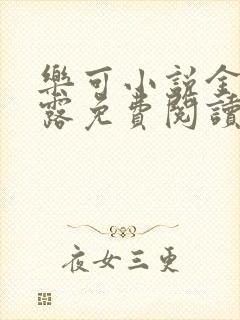 樂可小說金
露免費閱讀
夜女三更